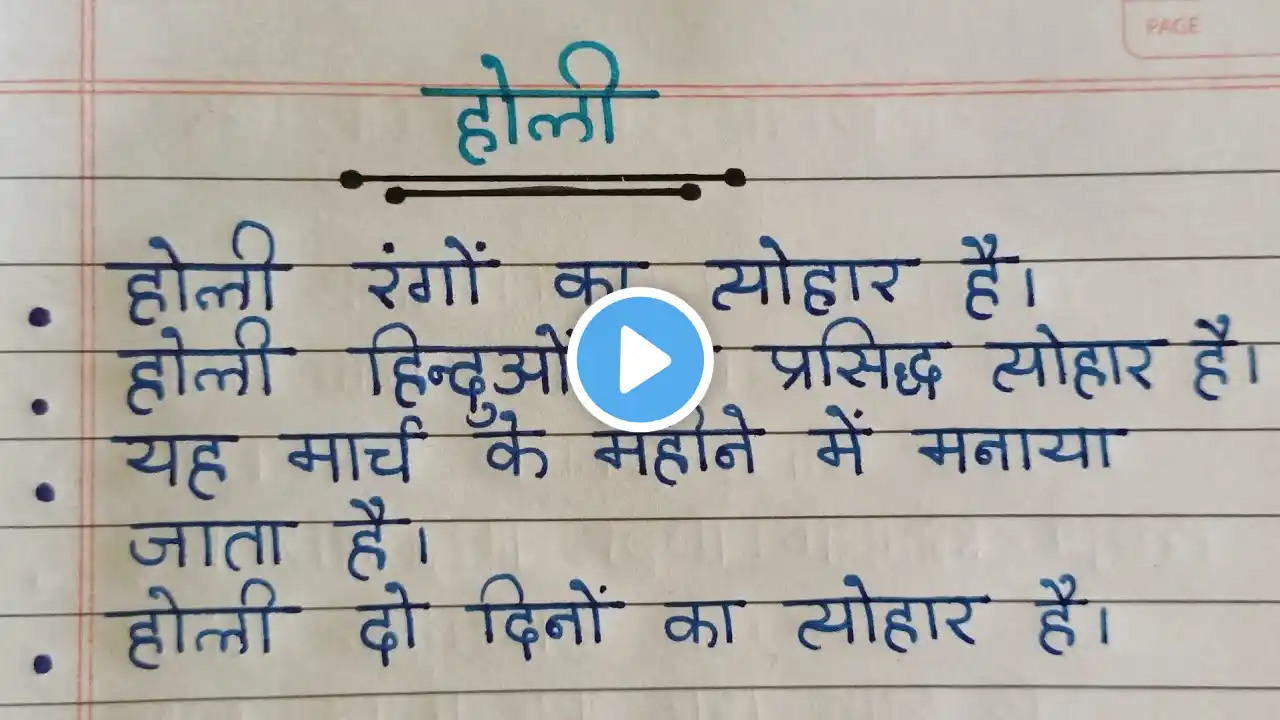 PAGE
होली
होली रंगों का त्योहार है।
होली हिन्दुओं प्रसिद्ध त्योहार है।
यह मार्च के महीने में मनाया
जाता है।
होली दो दिनों का त्योहार है।